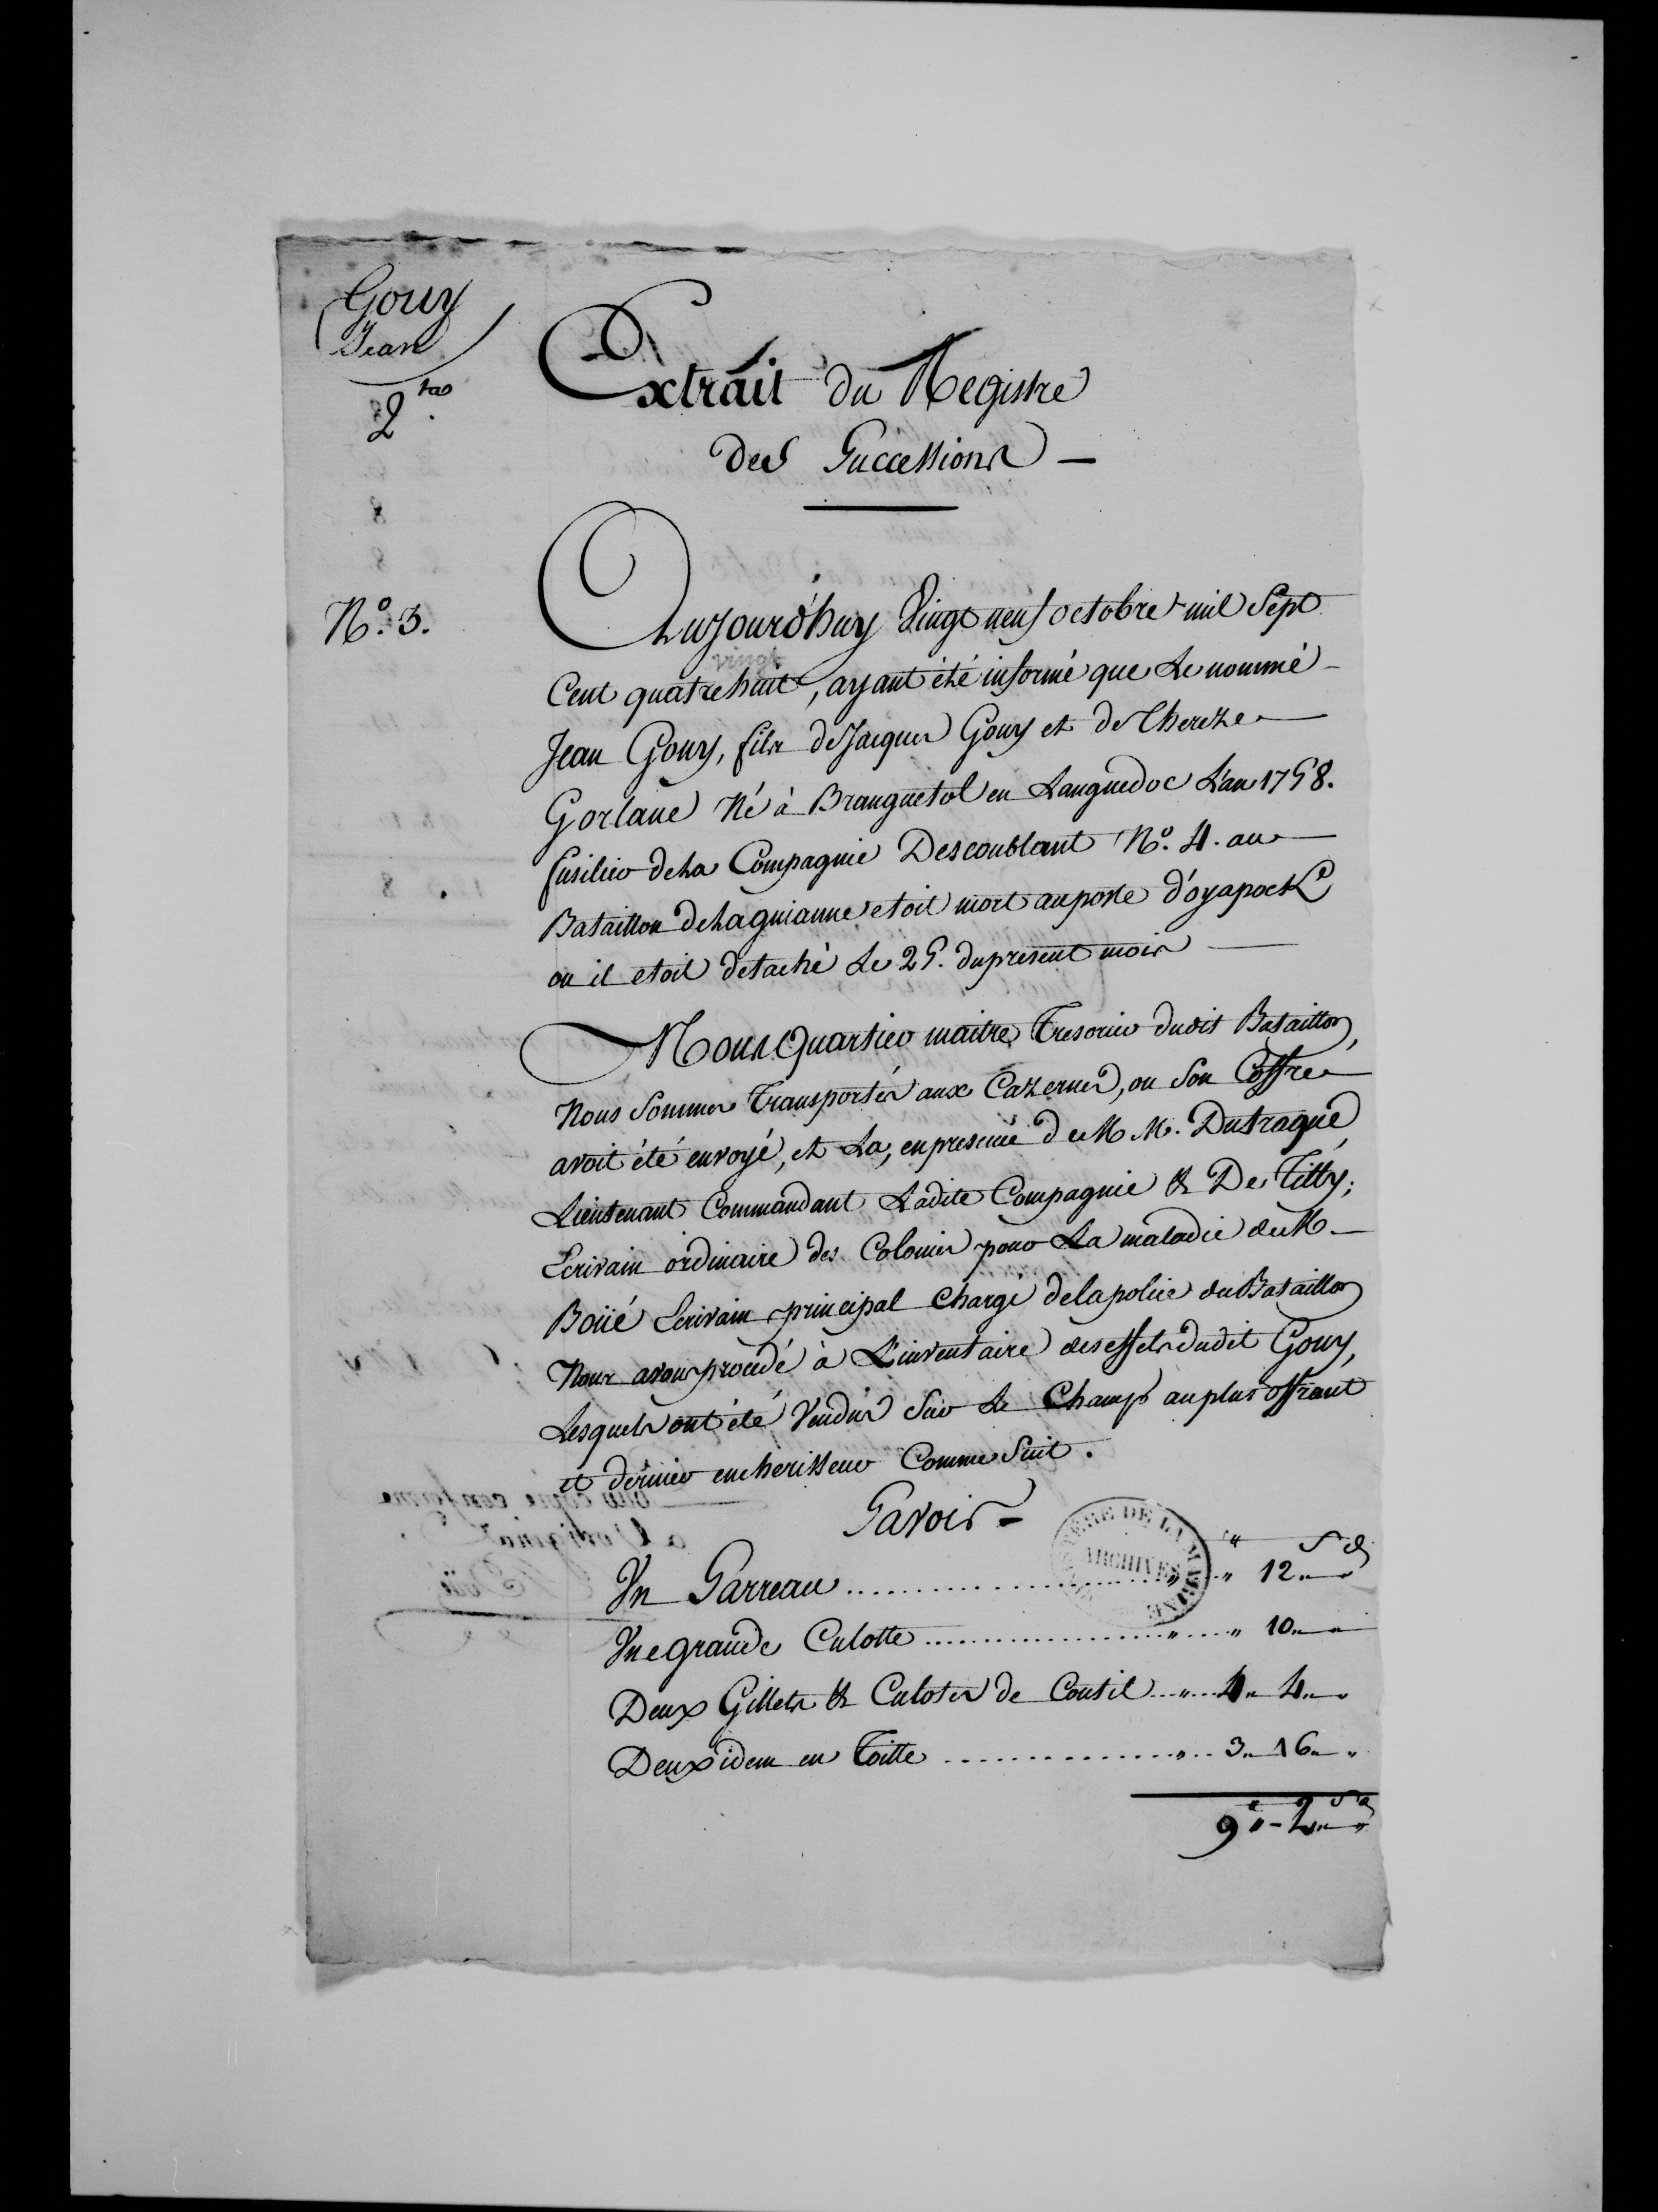 Gouy
Jean
2
Extrait du Registre
des Successions
N.º 3.
Aujourd'huy Vingt neuf octobre mil Sept
vingt
Cent quatre huit, ayant été informé que Le nommé
Jean Gouy, fils de Jacques Gouy et de Thereze
Gorlane Né à Branguetol en Languedoc L'an 1758.
fusilier de La Compagnie Descoublant N.º 4. au
Bataillon de La guianne etoit mort au poste d'oyapock
ou il etoit detaché Le 25. du present mois
Nous Quartier maitre Tresorier dudit Bataillon,
Nous Sommes Transportés aux Cazernes, ou Son Coffre
avoit été envoyé, et La, en presence de M M. Dutragne
Lieutenant Commandant Ladite Compagnie & De Tilly;
Ecrivain ordinaire des Colonies pour La maladie de M
Boüé Ecrivain principal Chargé de la police du Bataillon
Nous avons procedé à L'inventaire des effets dudit Gouy,
Lesquels ont été Vendus Sur Le Champ au plus offrant
et dernier encherisseur Comme Suit.
Savoir
MINISTÈRE DE LA MARINE
ARCHIVES
S d
Un Sarreau .......... " " 12 "
Une grande Culotte .......... " " 10 "
Deux Gillets & Culotes de Coutil .... " 4 " 4 "
Deux idem en Toille .......... " 3 " 16 "
9 " - 2 " "